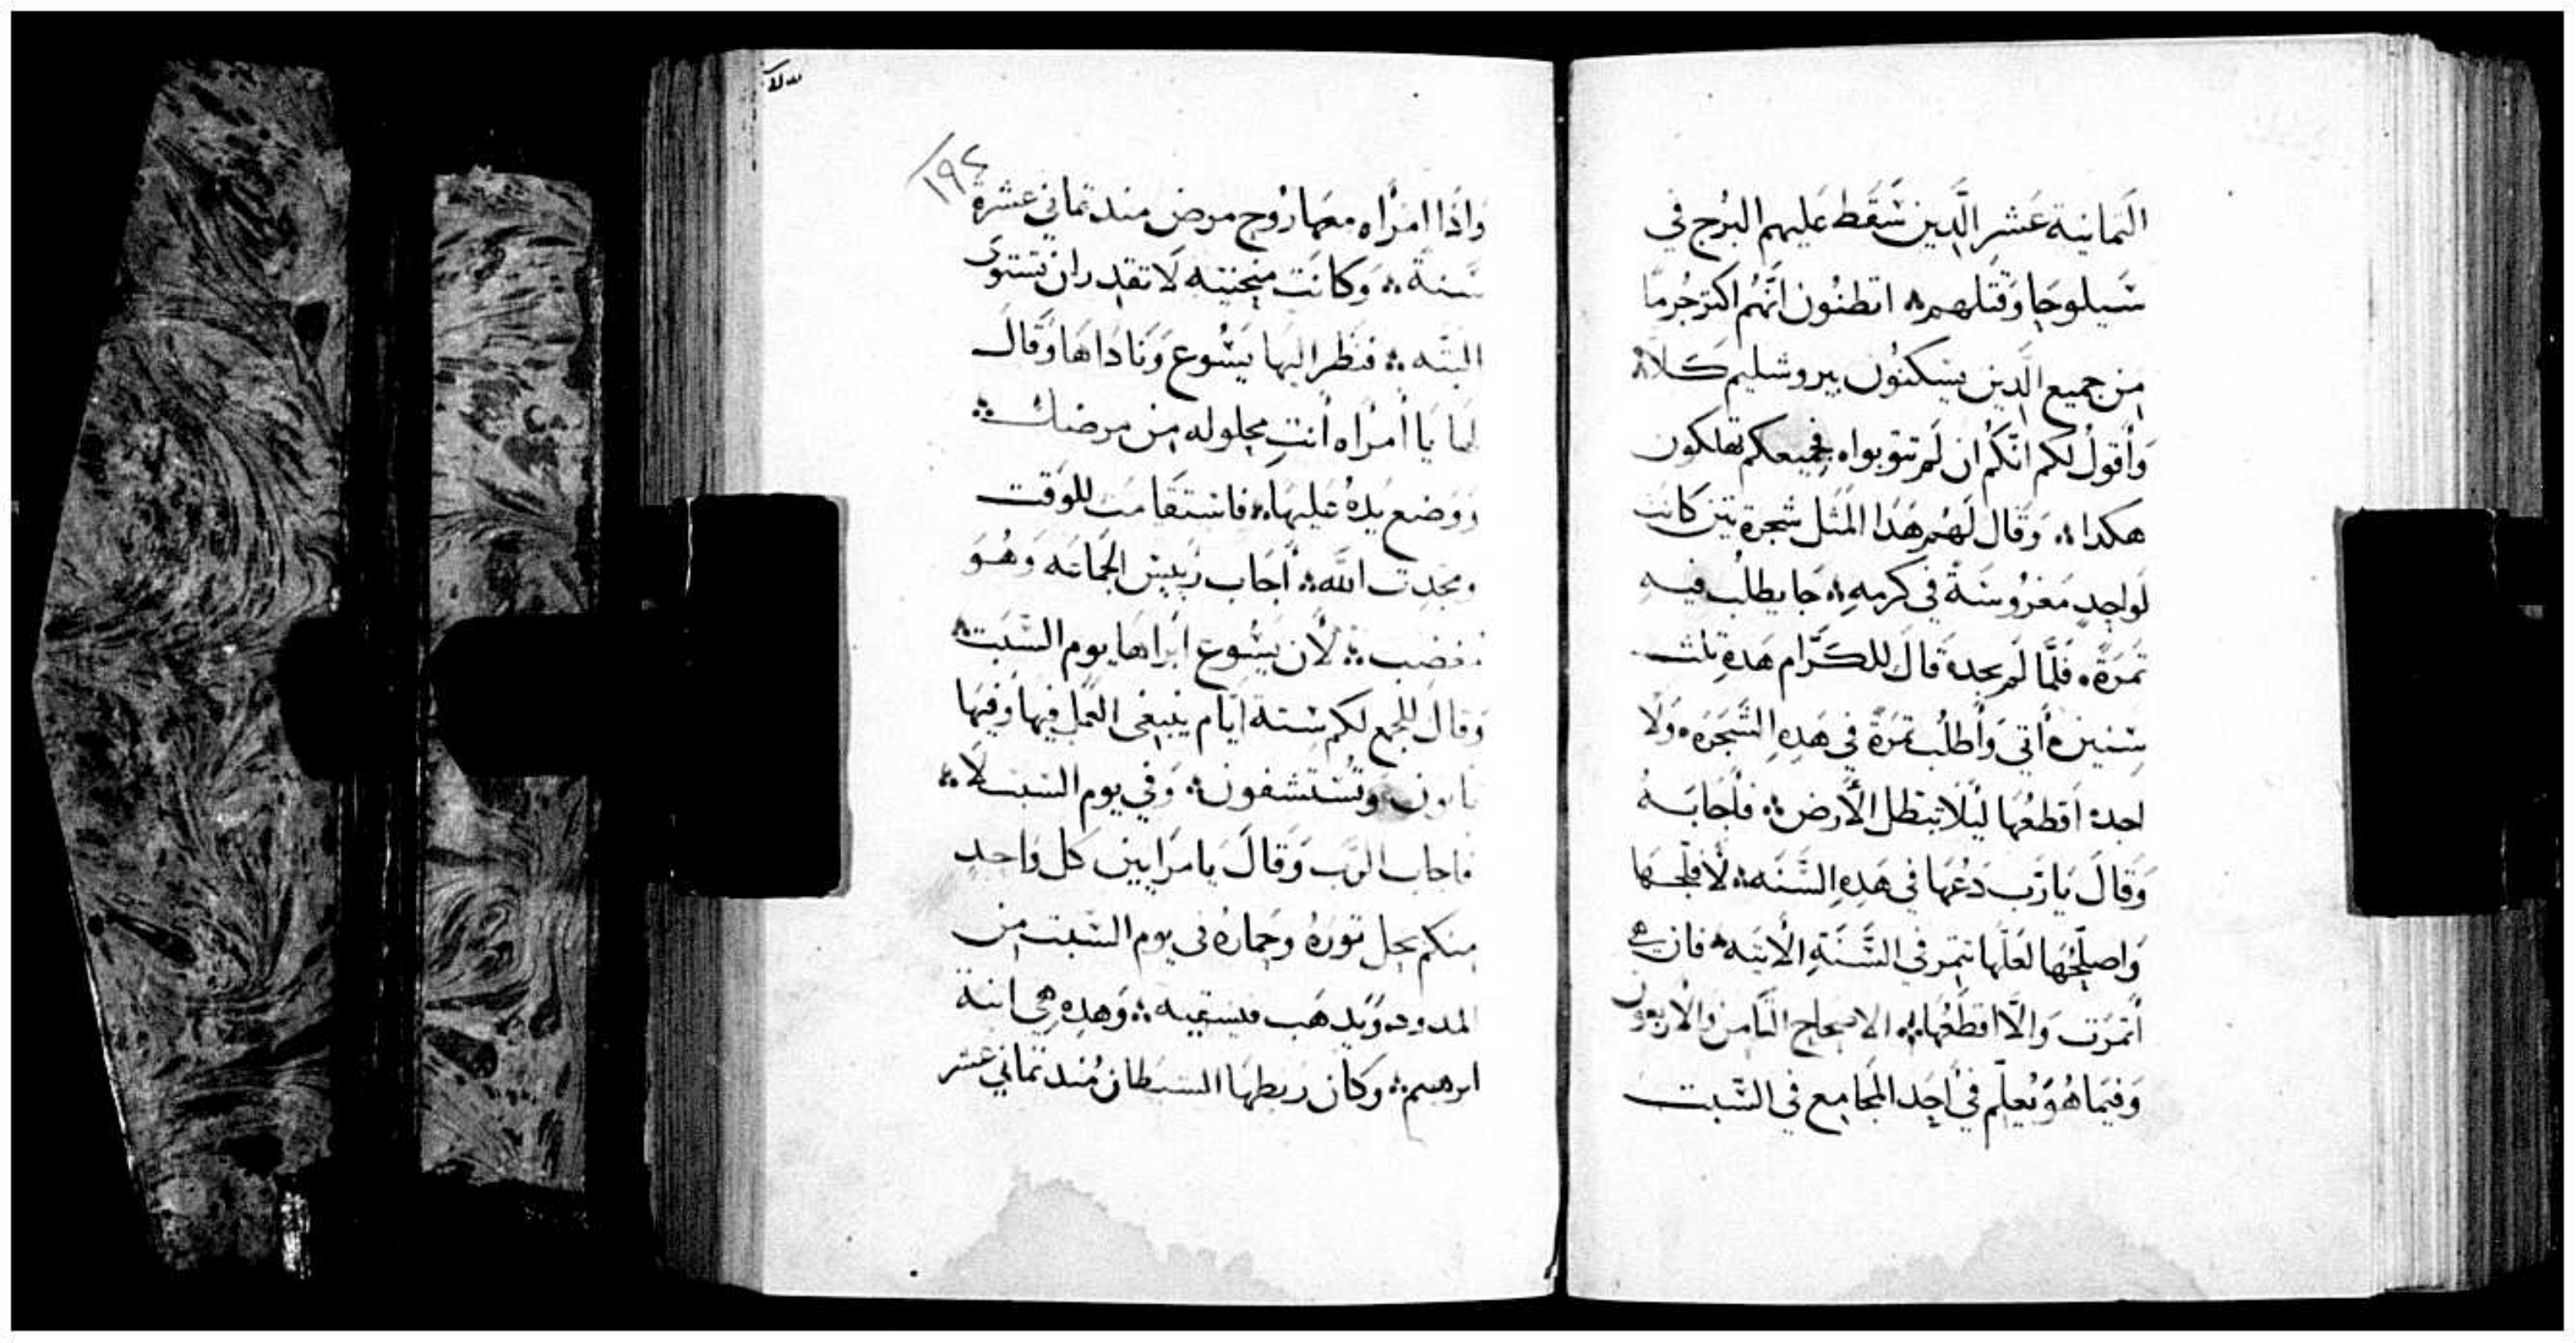 الثمانية عشر الَّدين سَقَط عَليهم البُرج في
سَيلوحا وَقَتلهم ܀ اتظنُون انّهُم اكتر جُرمًا
مِن جميع الَّدين يسَكنُون بيروشليم كَلاَّ ܀
وَأقولُ لكم انّكم ان لَم تتوبواه فجميعكم تهلكون
هكدا ܀ وَقال لَهُم هَدا المثل شجرة تين كانت
لوَاحِدٍ مَغرُوسَة في كرمهِ ܀ جَا يطلُب فيهِ
تمَرةً ܀ فَلَّما لَم يجدهَ قالَ للكَرَّام هَدهِ تلث
سِنين ه أتي وَأطلُب تمَرةً في هَدهِ الشَجَره وَلا
اجدهُ اقطعُها ليَلا تبطل الأرض ܀ فأجَابَهُ
وَقالَ يَارَب دَعُهَا في هَدهِ السَّنَه ܀ لأفلحَها
وَاصلِحُهَا لعَلّهَا تتمر في السَّنَةِ الأتيَه ܀ فان هي
أتمرَت وَالّا اقطَعُهَا ܀ الاصحاح التامن والاربعون
وَفيَما هُوَ يُعلّم في اَحِد المجَامِع في السَّبت
١٩٤
وَادَا امرْأه معَهَا رُوح مرض مند تماني عَشرة
سَنةً ܀ وَكانَت مِنحَنيَه لَا تقدران تستوى
البتَّه ܀ فنَظرَ اليهَا يَسُوع وَنادَاهَا وَقالَ
لها يَا أمرْاه أنتِ محلوله مِن مرضك ܀
ووَضع يدهُ عَليهَا ܀ فاستقَامَت للوَقت
ومجَدت الله ܀ أجَاب رَئيس الجمَاعَه وَهُوَ
مغضب ܀ لأن يَسُوع ابراهَا يوم السَّبت ܀
وَقالَ للجمع لكم سِتة ايّام ينبغي العَمل فيهَا وَفيهَا
تاتون وَتُستشفون ܀ وَفي يوم السَبت لا ܀
فاجاب الرَب وَقالَ يَا مرَايين كل وَاحدٍ
مِنكم يحل تورهُ وحمَارهُ في يوم السَّبت مِن
المدود وَيدهَب فيسَقيه ܀ وَهدهِ هي ابنة
ابرهيم ܀ وَكان ربَطهَا السَيطان مُند تماني عشر